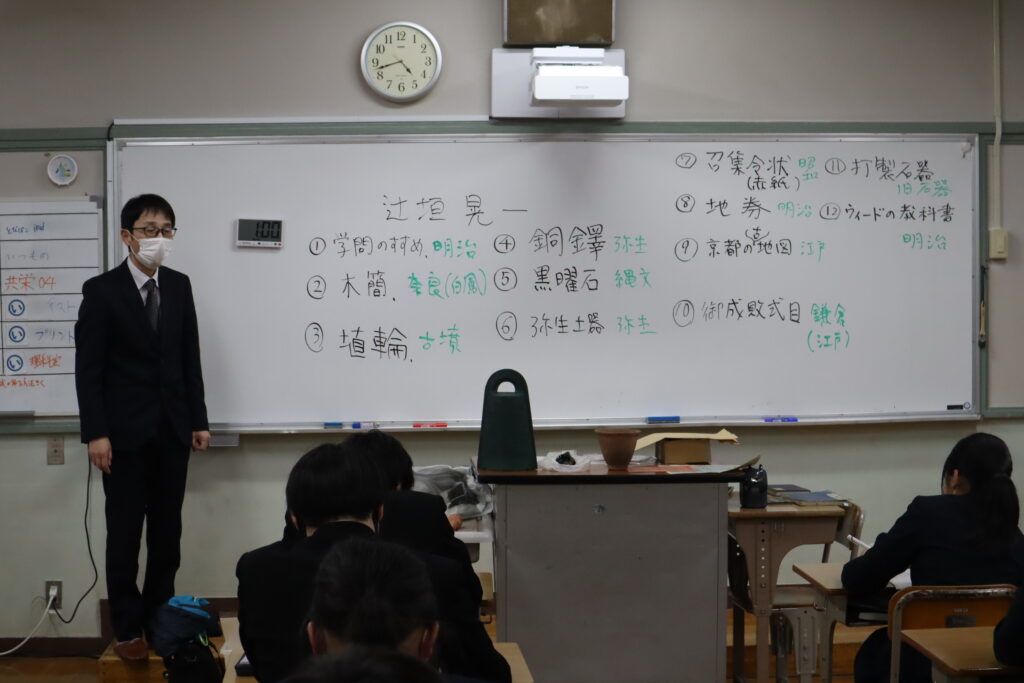 辻垣晃一
①学問のすすめ、明治
②木簡、奈良(白鳳)
③埴輪、古墳
④銅鐸 弥生
⑤黒曜石 縄文
⑥弥生土器 弥生
⑦召集令状 昭和
(赤紙)
⑧地券 明治
⑨京都の(古)地図 江戸
⑩御成敗式目 鎌倉
(江戸)
⑪打製石器
旧石器
⑫ウィードの教科書
明治
1:00
EPSON
いつもの
共栄04
い
い プリント
い
12 1 2 3 4 5 6 7 8 9 10 11